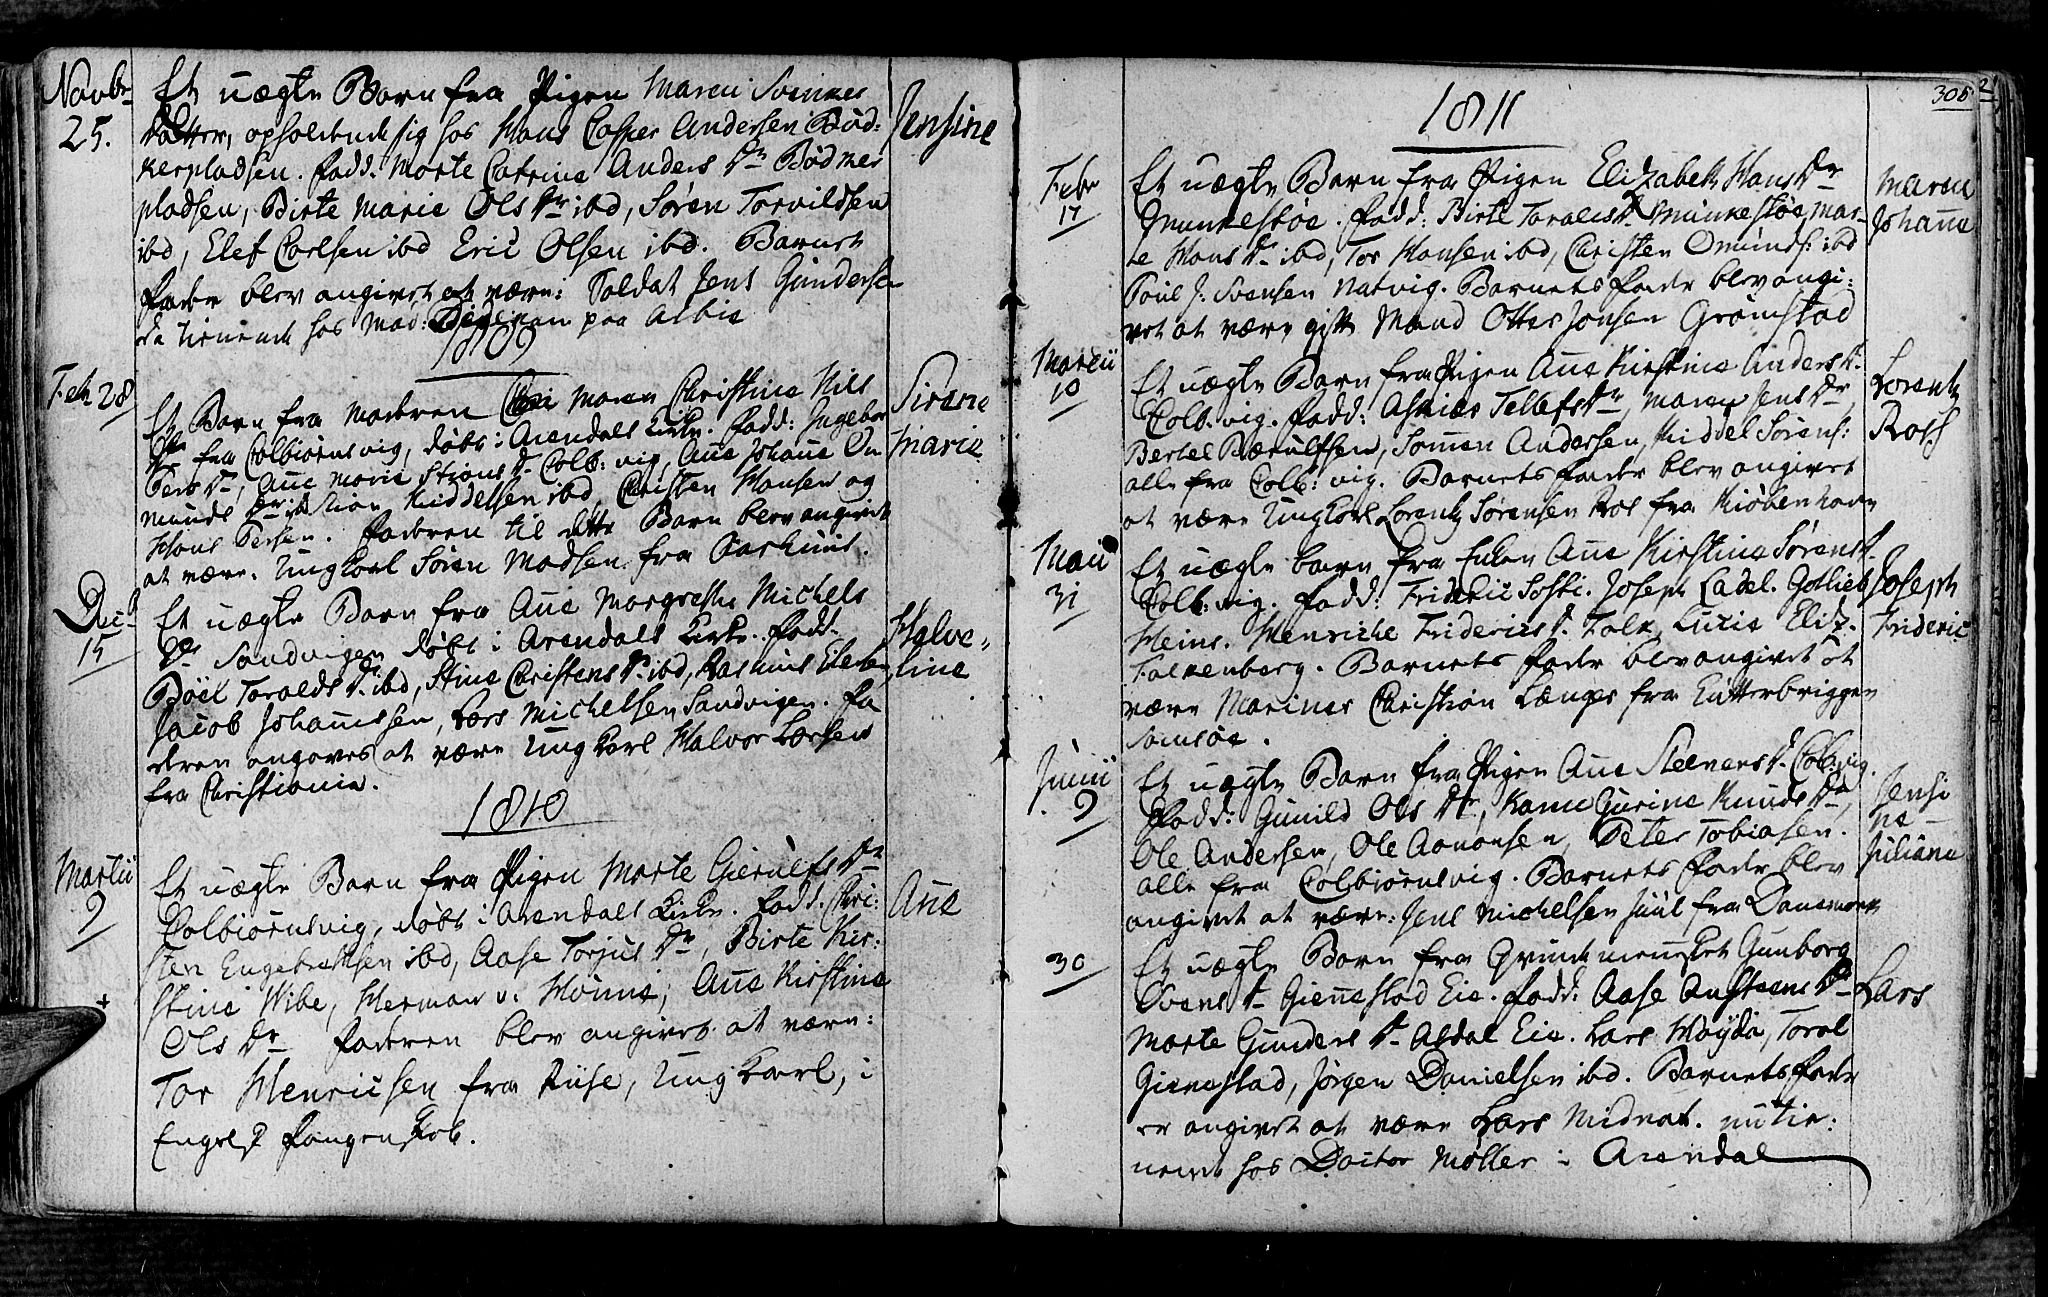 Novbr
25.
Et uægte Barn fra Pigen Maren Svenkes
datter, opholdende sig hos Hans Casper Andersen Bød:
kerpladsen. fadd: Morte Catrine Anders Dr Bødker
pladsen, Birte Marie Ols Dr ibd, Søren Torvildsen
ibd, Elef Carlsen ibd Eric Olsen ibd. Barnets
fader blev angivet at være: Soldat Jens Gunderse
da tienende hos Mad: paa Albie
Jensine
1809
Feb 28
Et Barn fra moderen Maren Christine Nils
Dr fra Colbiørnsvig, døbt i Arendals Kirke. fadd: Ingebor
Pers Dr, Anne Marie Stians Dr Colb: vig, Anne Johanne On
munds Dr Stian Kiddelsen ibd, Christen Hansen og
Hans Persen. faderen til dette Barn blev angivet
at være. Ungkarl Søren Madsen fra Aarhuus.
Sirene
Marie
Decb
15
Et uægte Barn fra Anne Margrethe Michels
Dr Sandvigen døbt i Arendals Kirke. fadd:
Böel Toralds Dr ibd, Stine Christens Dr ibd, Rasmus
Jacob Johannessen, Lars Michelsen Sandvigen. fa
deren angaves at være Ungkarl Halvor Larsen
fra Christiania.
Halve-
line
1810
Martii
9
Et uægte Barn fra Pigen Marte Gierulfs Dr
Colbiørnsvig, døbt i Arendals Kirke. fadd. Chri:
sten Engebrethsen ibd, Aase Torjus Dr, Birte Kir:
stine Vibe, Herman v. ; Anne Kirstine
Ols Dr faderen blev angivet at være:
Tor Henricsen fra Riise, Ungkarl, i
Engelsk fangenskab.
Anne
305
1811
Febr
17
Et uægte Barn fra Pigen Elizabeth Hans Dr
Munkestøe. fadd: Birte Toralds Dr Munkestøe, Mar-
te Hans Dr ibd, Tor Hansen ibd, Christen Omunds: ibd
Poul J. Svensen Natvig. Barnets fader blev angi:
vet at være gift Mand Otter Jonsen Grømstad
Maren
Johanne
Martii
10
Et uægte Barn fra Pigen Anne Kirstine Anders Dr.
Colb: vig. fadd: Tellefs Dr, Maren Jens Dr,
Bertel Bærulfsen, Simen Andersen, Kiddel Sørens:
alle fra Colb: vig. Barnets fader blev angivet
at være Ungkarl Lorentz Sørensen Ros fra Kiøbenhavn
Lorentz
Ross
Maii
31
Et uægte barn fra Enken Anne Kirstine Sørens Dr
Colb: vig. fadd: Frideric . Joseph Ladel. Gotlieb
Heins. Henriche Friderics Dr. Falk, Lucie Eliz.
Falkenberg. Barnets fader blev angivet at
være Mariner Christian Længes fra Cutterbriggen
Samsøe.
Joseph
Frideric
Junii
9
Et uægte Barn fra Pigen Anne Steeners Dr. Colb: vig.
fadd: Gunild Ols Dr, Karen Gurine Knuds Dr,
Ole Andersen, Ole Aanonsen, Peter Tobiasen.
alle fra Colbiørnsvig. Barnets fader blev
angivet at være: Jens Michelsen Juul fra Danemark
Jensi
ne
Juliane
30
Et uægte Barn fra Qvindemennesket Gunborg
Svens Dr Giennestad Eie. fadd: Aase Austeens Dr
Morte Gunders Dr Asdal Eie. Lars Høyda, Toral
Giennestad, Jørgen Danielsen ibd. Barnets fader
er angivet at være Lars Midnat. nu tie:
nende hos Doctor Møller i Arendal
Lars